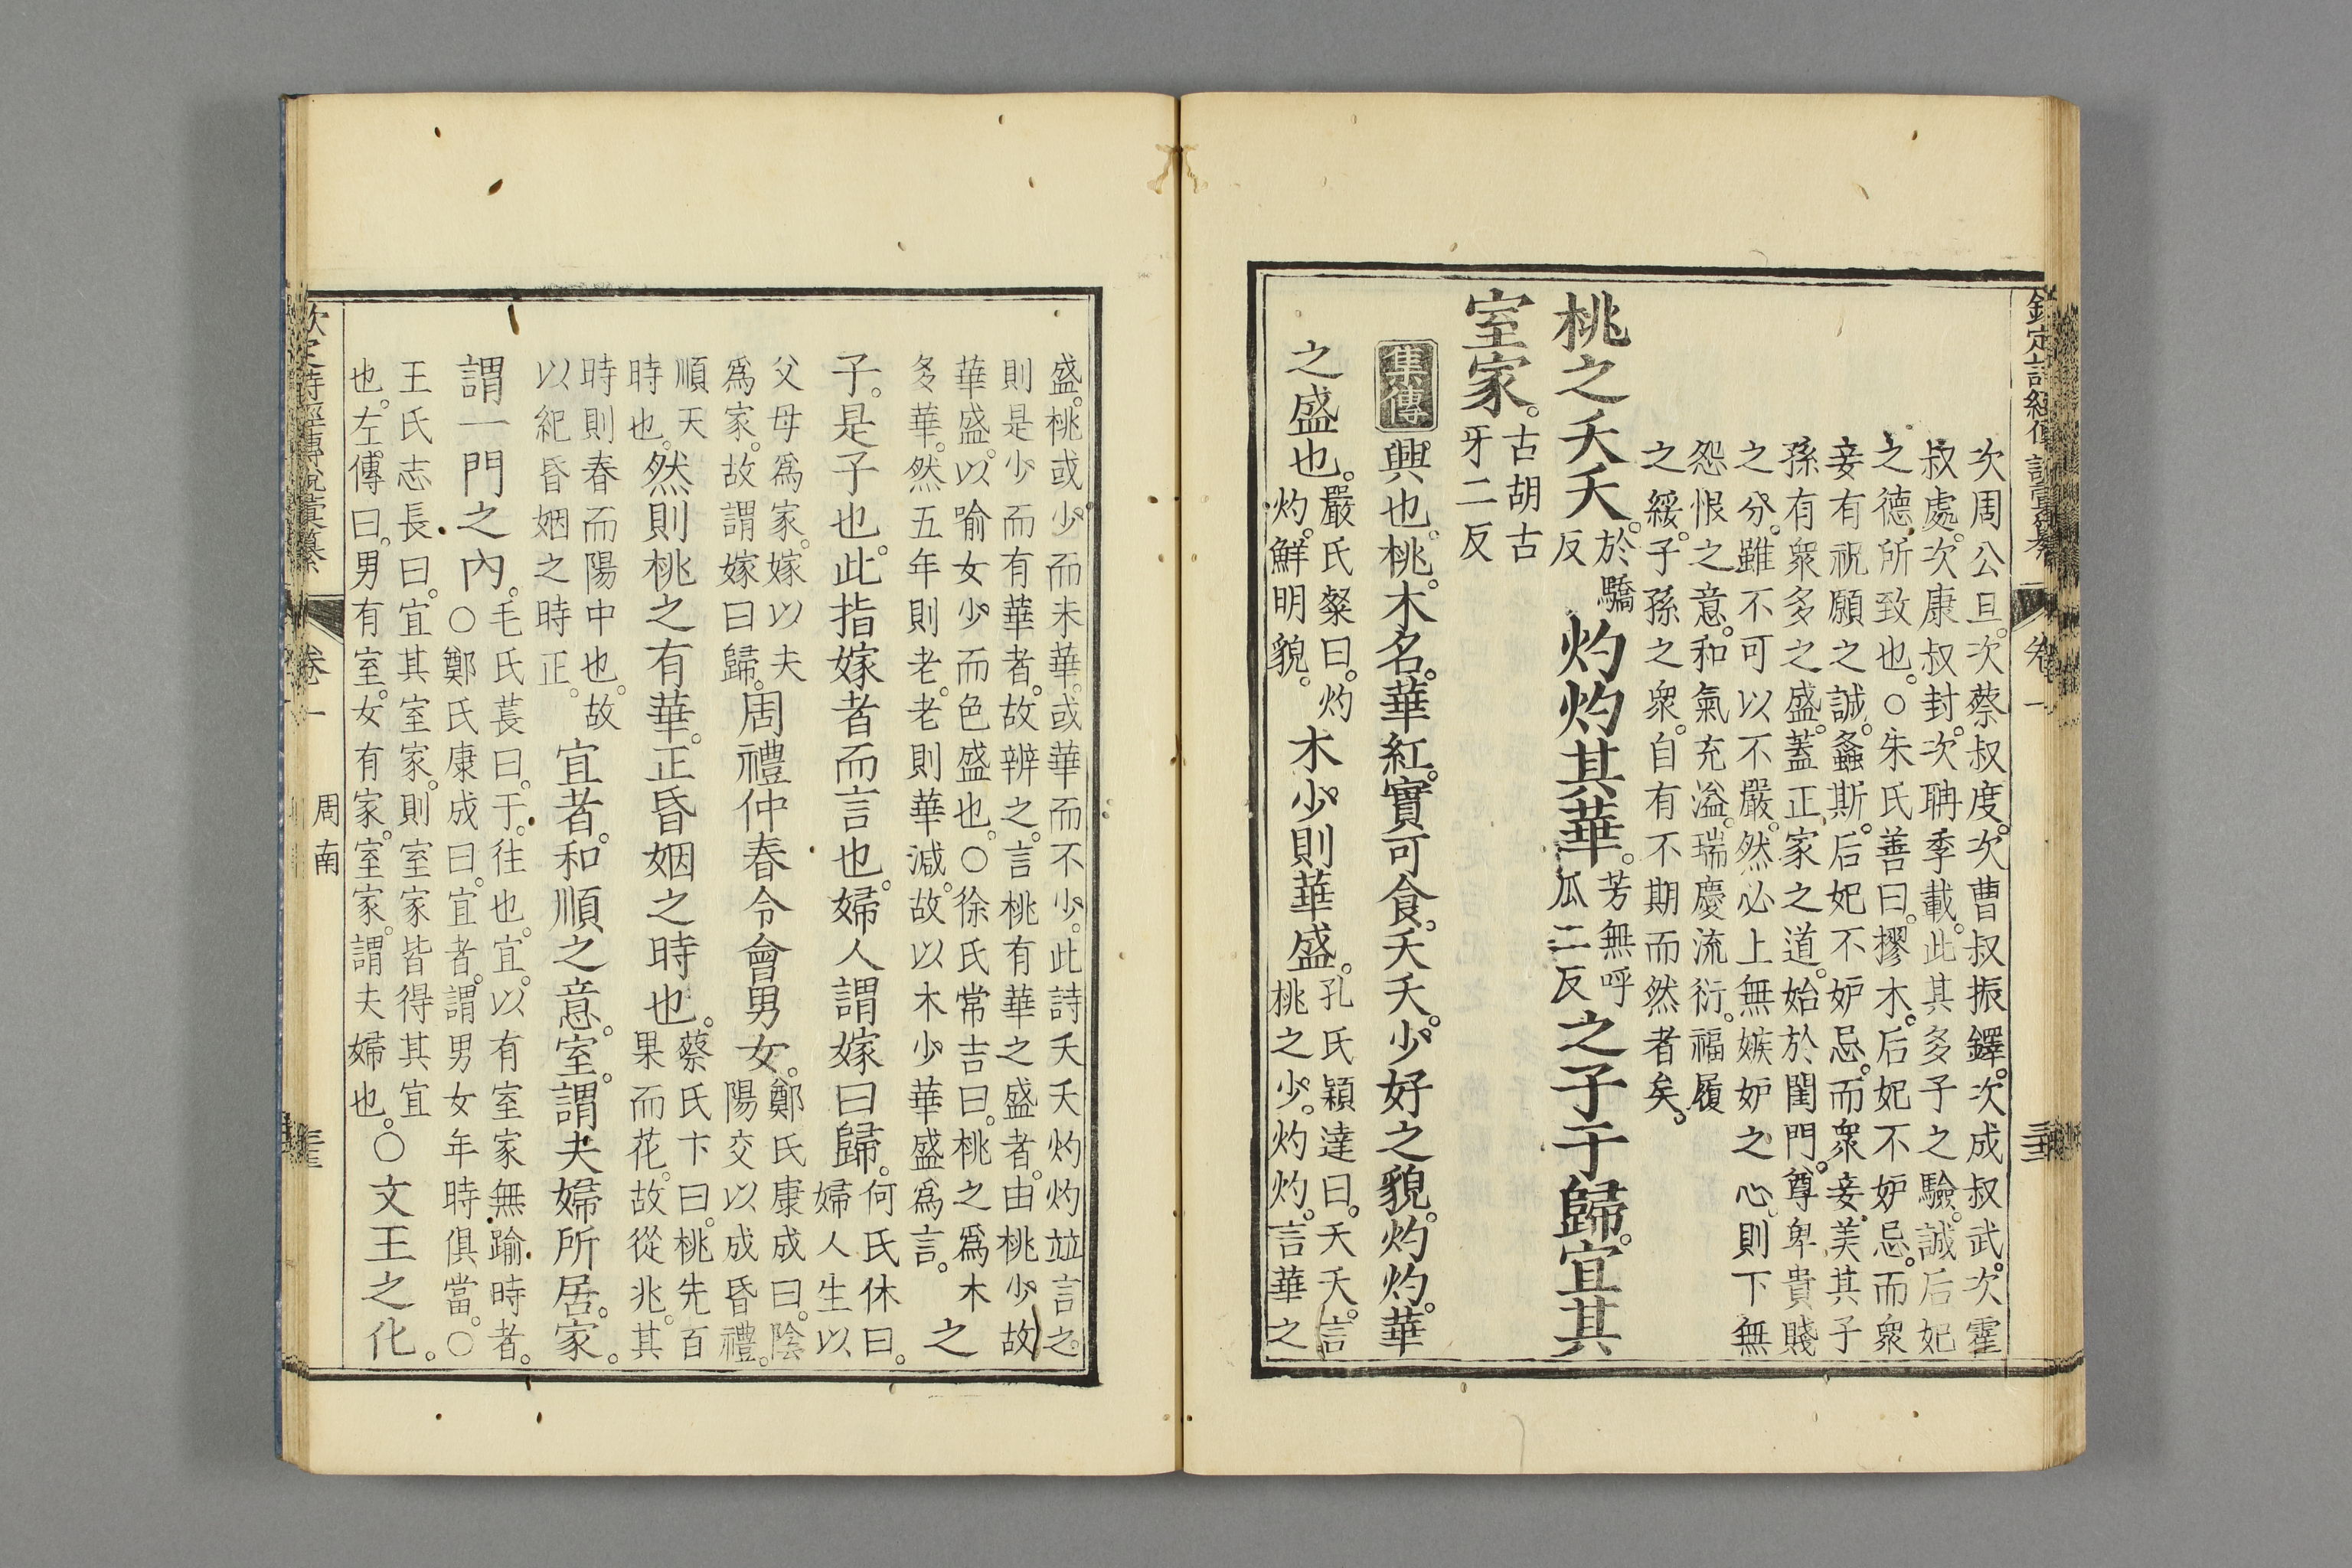 欽定詩經傳說彙纂 卷一
次周公旦。次蔡叔度。次曹叔振鐸。次成叔武。次霍
叔處。次康叔封。次聃季載。此其多子之驗。誠后妃
之德所致也。○朱氏善曰。樛木。后妃不妒忌。而衆
妾有祝願之誠。螽斯。后妃不妒忌。而衆妾美其子
孫有衆多之盛。蓋正家之道。始於閨門。尊卑貴賤
之分。雖不可以不嚴。然必上無嫉妒之心。則下無
怨恨之意。和氣充溢。瑞慶流衍。福履
之綏。子孫之衆。自有不期而然者矣。
桃之夭夭。於驕反灼灼其華。芳無呼瓜二反之子于歸。宜其
室家。古胡古牙二反
集傳 興也。桃。木名。華紅。實可食。夭夭。少好之貌。灼灼。華
之盛也。嚴氏粲曰。灼灼。鮮明貌。木少則華盛。孔氏穎達曰。夭夭。言桃之少。灼灼。言華之
盛。桃或少而未華。或華而不少。此詩夭夭灼灼竝言之。
則是少而有華者。故辨之。言桃有華之盛者。由桃少故
華盛。以喻女少而色盛也。○徐氏常吉曰。桃之爲木
多華。然五年則老。老則華減。故以木少華盛爲言。之
子。是子也。此指嫁者而言也。婦人謂嫁曰歸。何氏休曰。婦人生以
父母爲家。嫁以夫爲家。故謂嫁曰歸。周禮仲春令會男女。鄭氏康成曰。陰陽交以成昏禮。
順天時也。然則桃之有華。正昏姻之時也。蔡氏卞曰。桃先百果而花。故從兆。其
時則春而陽中也。故以紀昏姻之時正。宜者。和順之意。室。謂夫婦所居。家。
謂一門之內。毛氏萇曰。于。往也。宜。以有室家無踰時者。○鄭氏康成曰。宜者。謂男女年時俱當。○
王氏志長曰。宜其室家。則室家皆得其宜也。左傳曰。男有室。女有家。室家。謂夫婦也。○文王之化。
欽定詩經傳說彙纂 卷一 周南